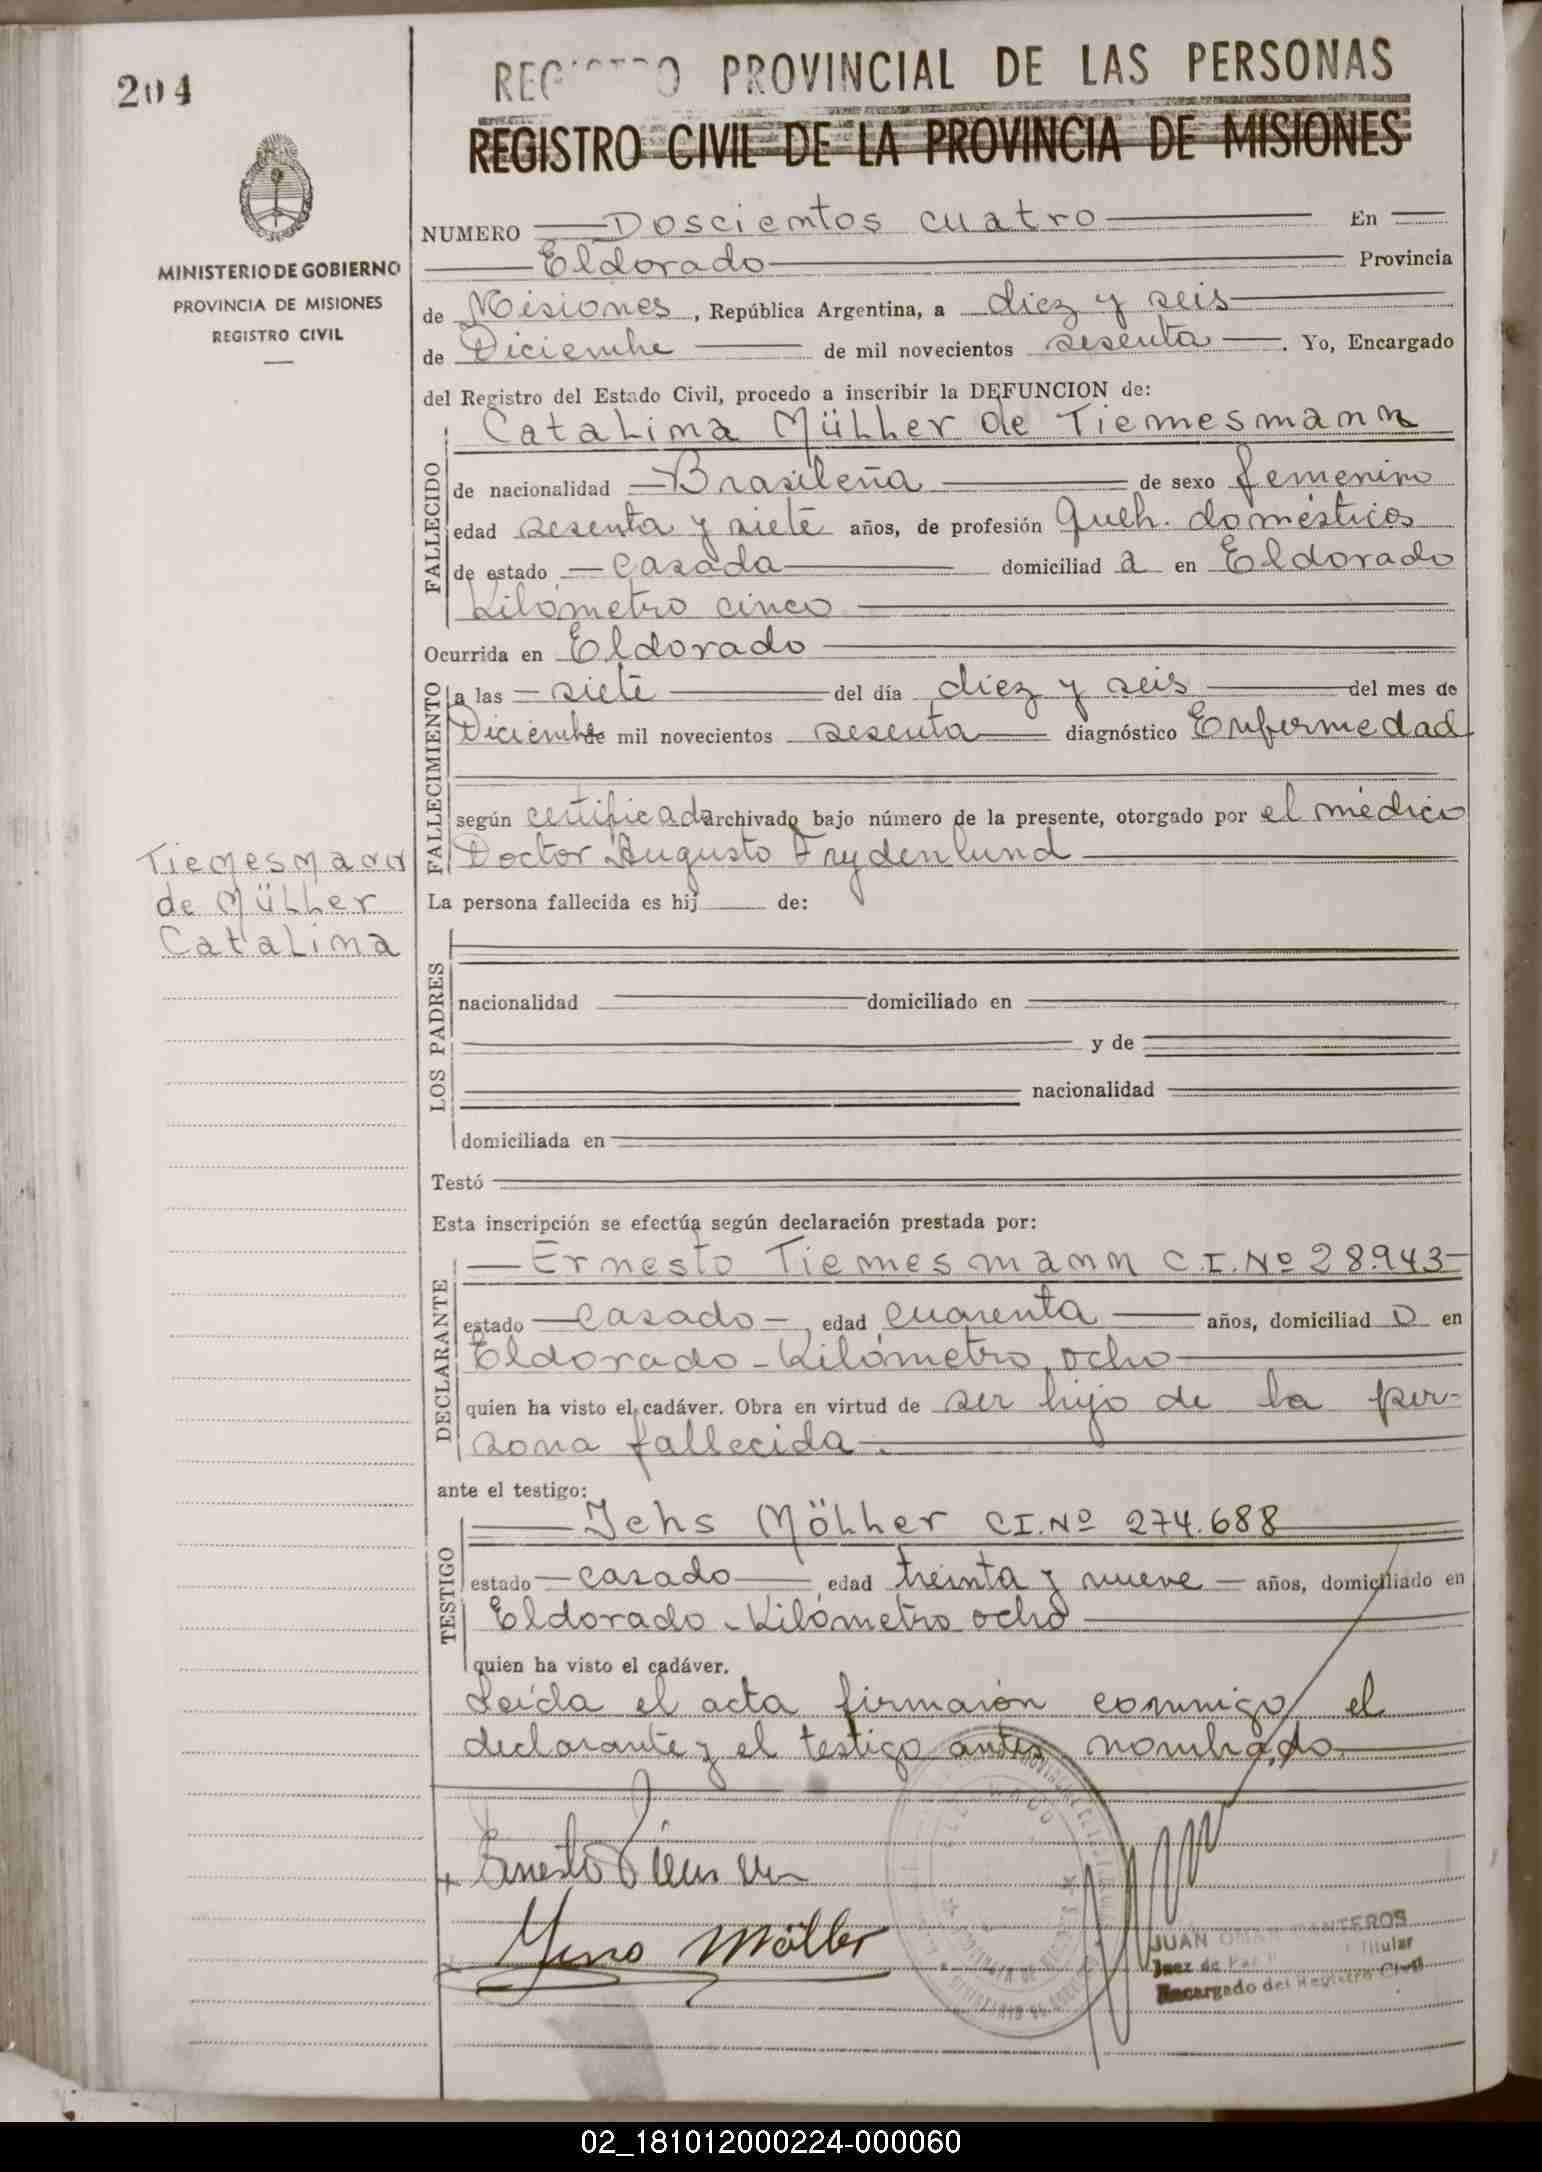 204
REGISTRO PROVINCIAL DE LAS PERSONAS
REGISTRO CIVIL DE LA PROVINCIA DE MISIONES
MINISTERIO DE GOBIERNO
PROVINCIA DE MISIONES
REGISTRO CIVIL
NUMERO Doscientos cuatro En
Eldorado Provincia
de Misiones, República Argentina, a diez y seis
de Diciembre de mil novecientos sesenta. Yo, Encargado
del Registro del Estado Civil, procedo a inscribir la DEFUNCION de:
Catalina Müller de Tiemesmann
FALLECIDO
de nacionalidad Brasileña de sexo femenino
edad sesenta y siete años, de profesión Queh. domésticos
de estado casada domiciliad a en Eldorado
Kilómetro cinco
Ocurrida en Eldorado
FALLECIMIENTO
a las siete del día diez y seis del mes de
Diciembre mil novecientos sesenta diagnóstico Enfermedad
según certificado archivado bajo número de la presente, otorgado por el médico
Doctor Augusto Frydenlund
Tiemesmann
de Müller
Catalina
La persona fallecida es hij de:
LOS PADRES
nacionalidad domiciliado en
y de
nacionalidad
domiciliada en
Testó
Esta inscripción se efectúa según declaración prestada por:
Ernesto Tiemesmann C.I. Nº 28.943
DECLARANTE
estado casado, edad cuarenta años, domiciliad o en
Eldorado - Kilómetro ocho
quien ha visto el cadáver. Obra en virtud de ser hijo de la per-
sona fallecida.
ante el testigo:
Jens Möller C.I. Nº 274.688
TESTIGO
estado casado edad treinta y nueve años, domiciliado en
Eldorado - Kilómetro ocho
quien ha visto el cadáver.
Leída el acta firmaron conmigo el
declarante y el testigo antes nombrado
Ernesto
Möller
JUAN OMAR MANTEROS
Juez de Paz Titular
Encargado del Registro Civil
02_181012000224-000060